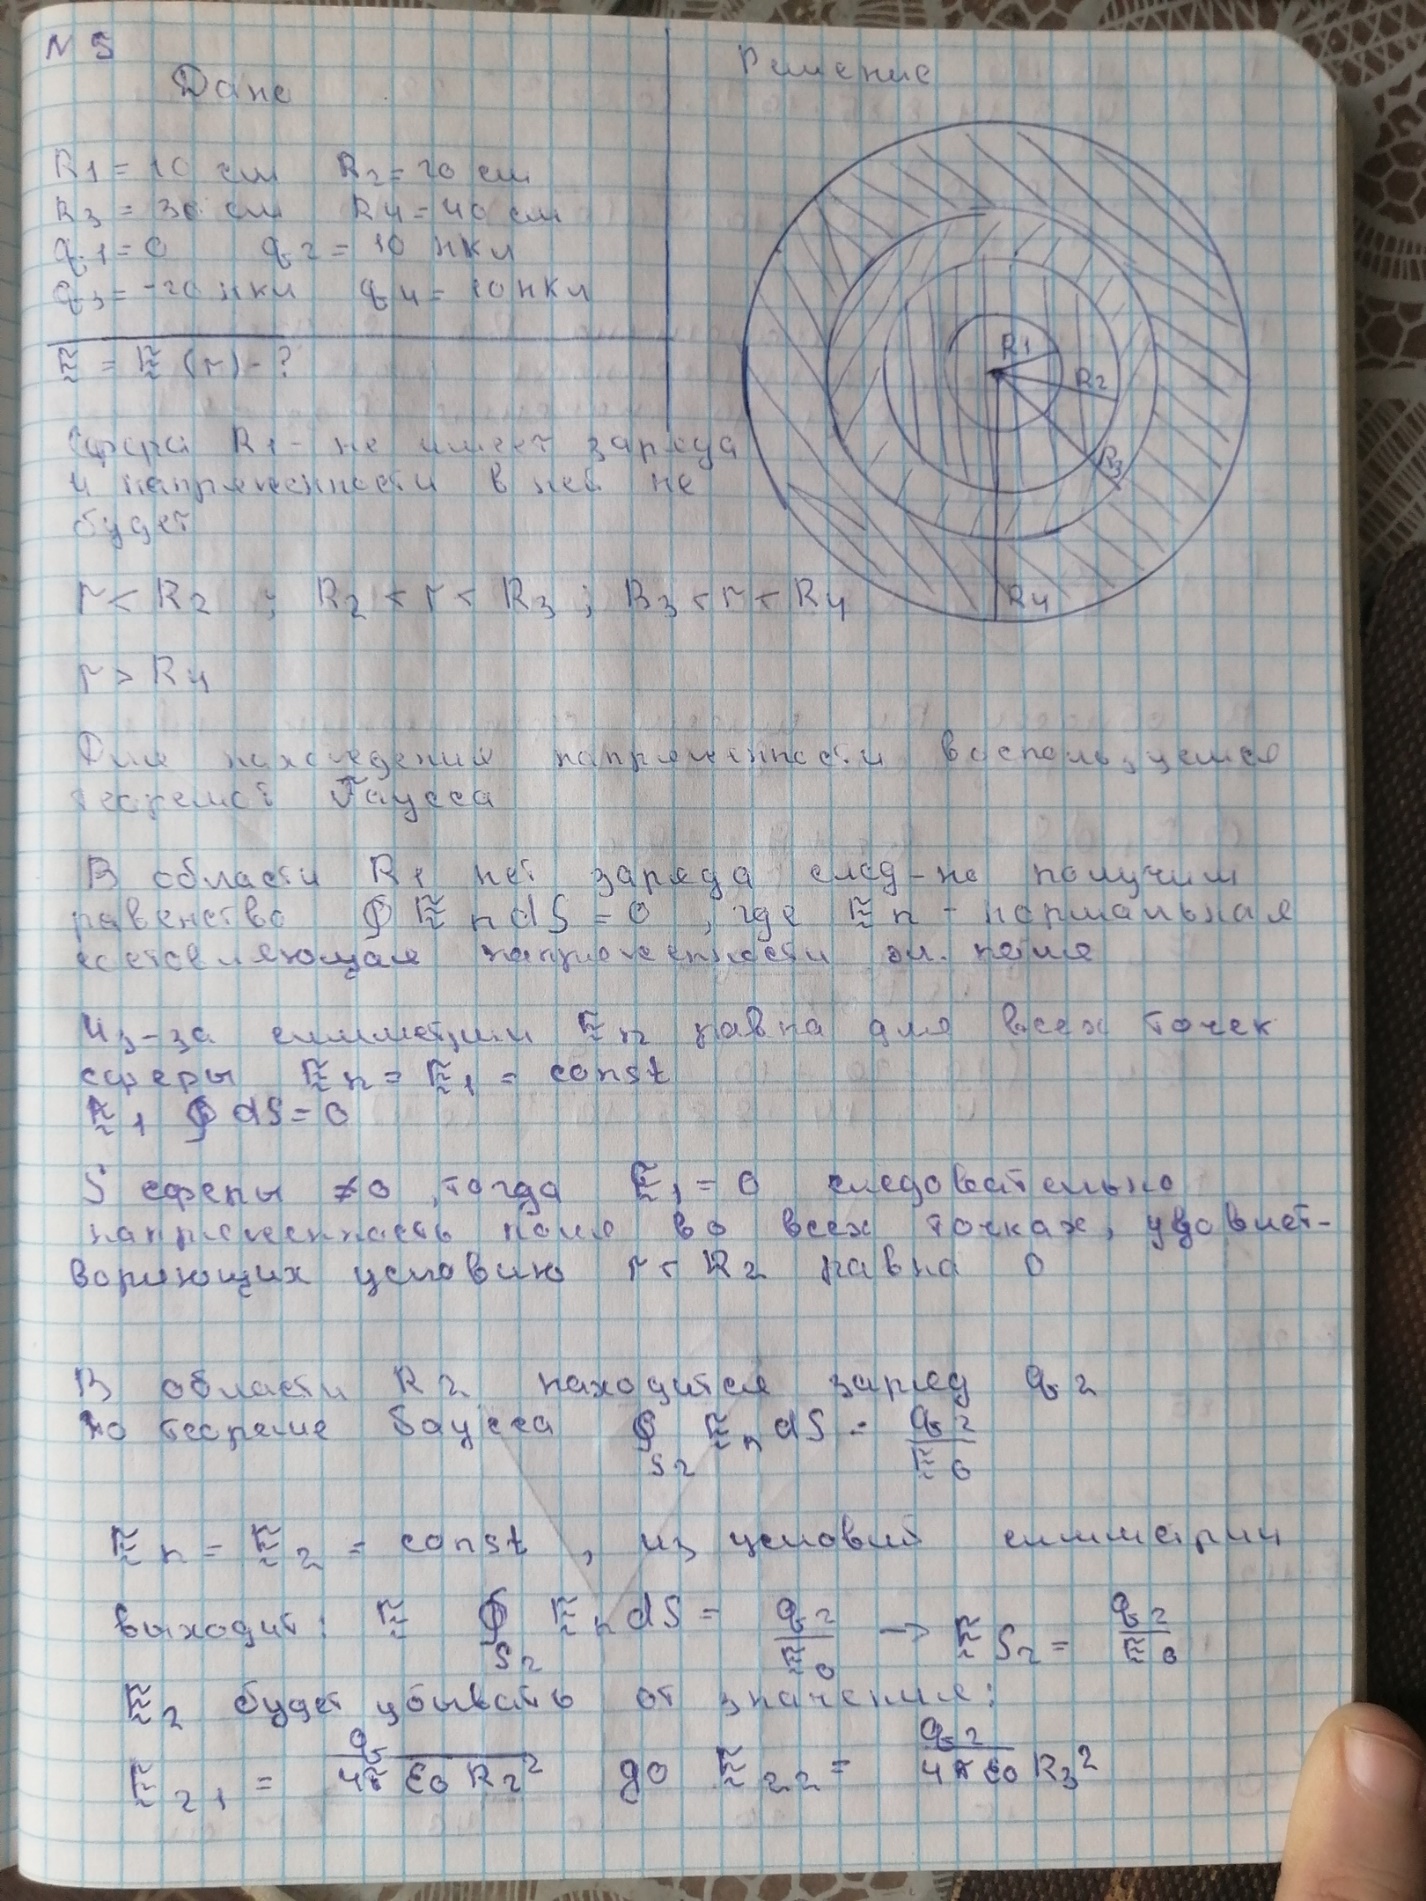 N 5
Дано
Решение
R1 = 10 см R2 = 20 см
R3 = 30 см R4 = 40 см
q1 = 0 q2 = 10 нкл
q3 = -20 нкл q4 = 10 нкл
E = E (r) - ?
R1
R2
R3
R4
Сфера R1 - не имеет заряда
и напряженности в ней не
будет
r < R2 ; R2 < r < R3 ; R3 < r < R4
r > R4
Для нахождения напряженности воспользуемся
теоремой Гаусса
В области R1 нет заряда след-но получим
равенство ∮ E n dS = 0 , где E n - нормальная
составляющая напряженности эл. поля
Из-за симметрии E n равна для всех точек
сферы E n = E 1 = const
E 1 ∮ dS = 0
S сферы ≠ 0 , тогда E 1 = 0 следовательно
напряженность поля во всех точках, удовлет-
воряющих условию r < R2 равна 0
В области R2 находится заряд q2
по теореме Гаусса ∮ S2 E n dS = q2 / E 0
E n = E 2 = const , из условий симметрии
выходит: E ∮ S2 E n dS = q2 / E 0 → E S2 = q2 / E 0
E 2 будет убывать от значения:
E 21 = q / 4π ε0 R2² до E 22 = q2 / 4π ε0 R3²